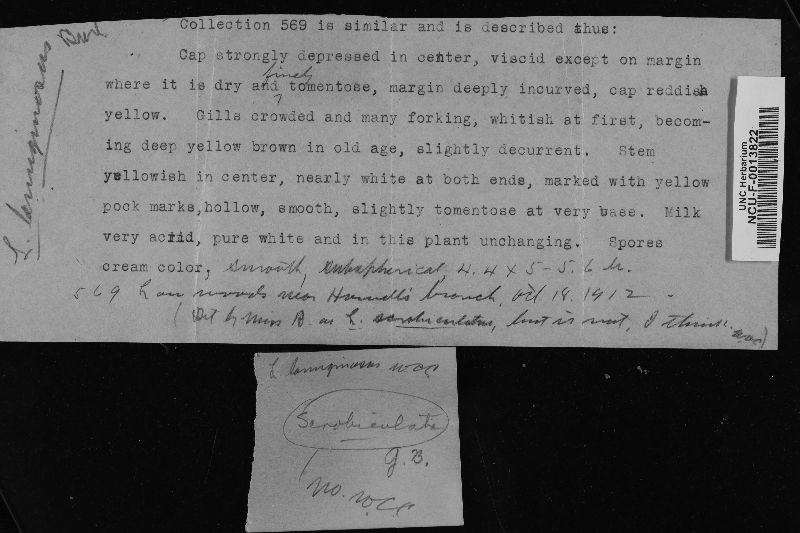 Collection 569 is similar and is described thus:
Cap strongly depressed in center, viscid except on margin
where it is dry and finely tomentose, margin deeply incurved, cap reddish
yellow. Gills crowded and many forking, whitish at first, becom-
ing deep yellow brown in old age, slightly decurrent. Stem
yellowish in center, nearly white at both ends, marked with yellow
pock marks,hollow, smooth, slightly tomentose at very base. Milk
very acrid, pure white and in this plant unchanging. Spores
cream color, smooth, subspherical, 4.4 x 5-5.6 u.
569 Low woods near Howell's branch, Oct 19. 1912 -
(Det by Miss B. as L. scrobiculatus, but is not, I think. WCC)
L. lanuginosus Burl
UNC Herbarium
NCU-F-0013822
L. lanuginosus WCC
Scrobiculata
G.B.
No. WCC